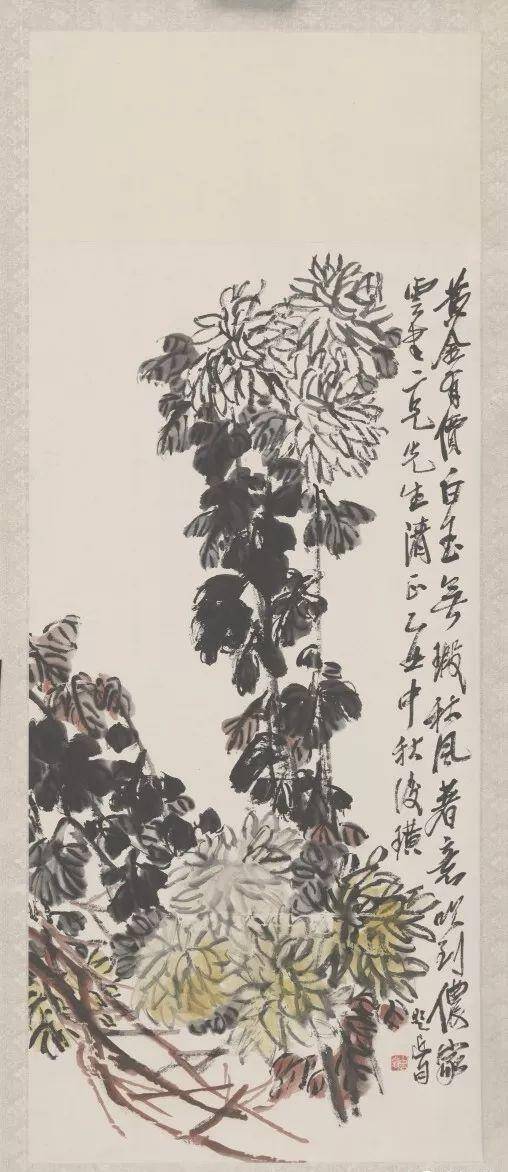 黄金有價白玉無瑕秋風著意吹到儂家
雲書二兄先生清正乙丑中秋後璜